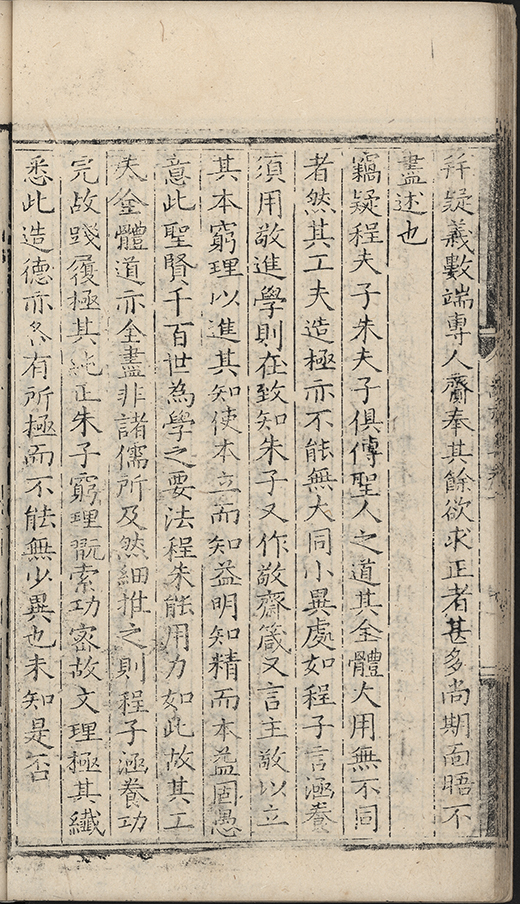 并疑義數端專人齎奉其餘欲求正者甚多尚期面晤不
盡述也
竊疑程夫子朱夫子俱傳聖人之道其全體大用無不同
者然其工夫造極亦不能無大同小異處如程子言涵養
須用敬進學則在致知朱子又作敬齋箴又言主敬以立
其本窮理以進其知使本立而知益明知精而本益固愚
意此聖賢千百世為學之要法程朱能用力如此故其工
夫全體道亦全盡非諸儒所及然細推之則程子涵養功
完故踐履極其純正朱子窮理翫索功密故文理極其纖
悉此造德亦各有所極而不能無少異也未知是否